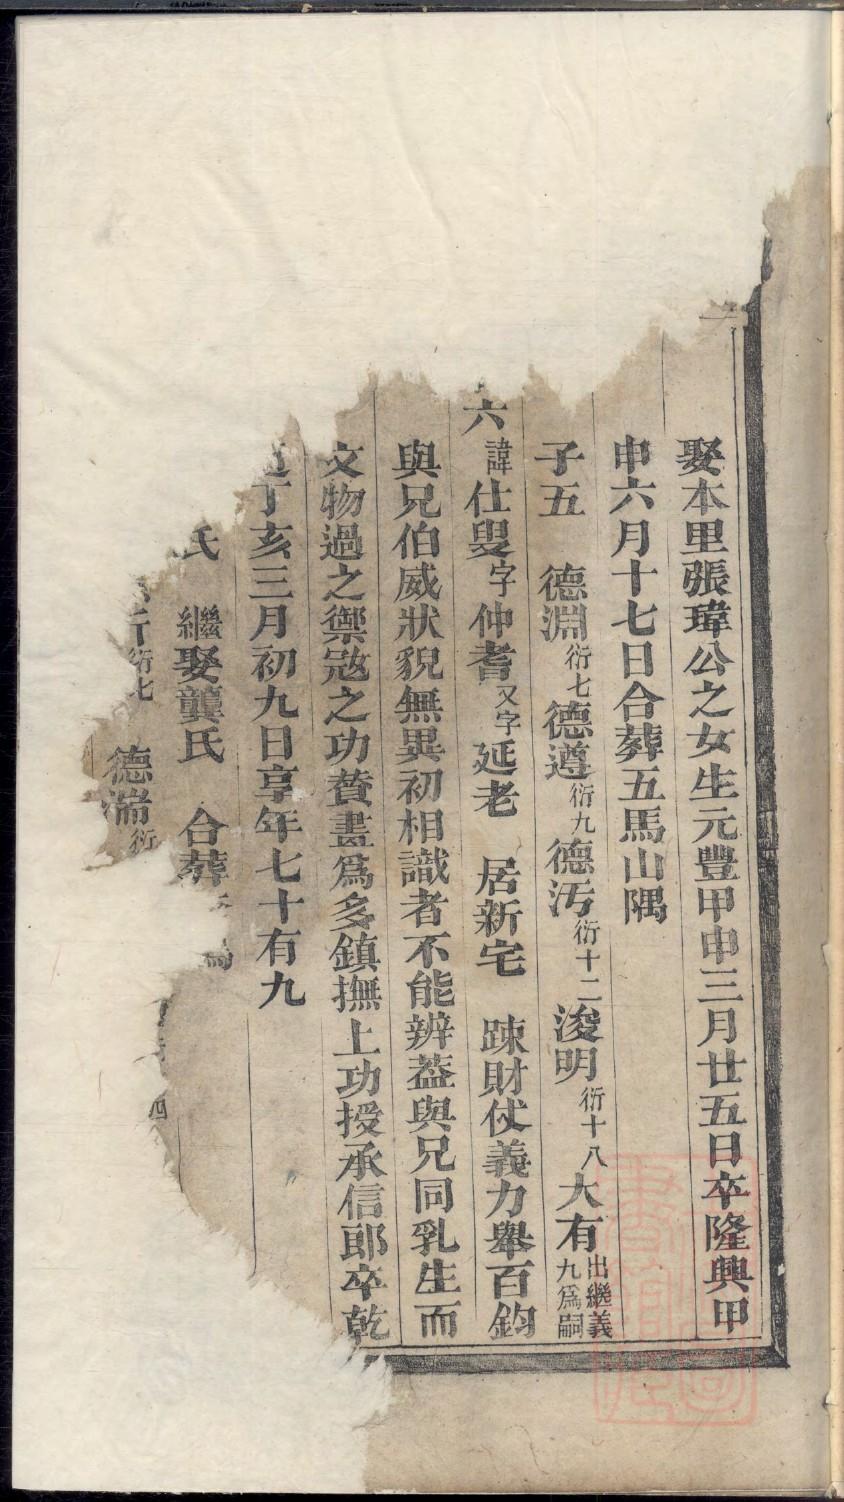 娶本里張瑋公之女生元豐甲申三月廿五日卒隆興甲
申六月十七日合葬五馬山隅
子五　德淵衍七德遵衍九德汚衍十二浚明衍十八大有出繼義九爲嗣
六諱仕叟字仲耆又字延老　居新宅　踈財仗義力舉百鈞
與兄伯威狀貌無異初相識者不能辨葢與兄同乳生而
文物過之禦寇之功贊畫爲多鎮撫上功授承信郎卒乾
道丁亥三月初九日享年七十有九
氏　繼娶龔氏　合葬
衍七　德湍衍
四